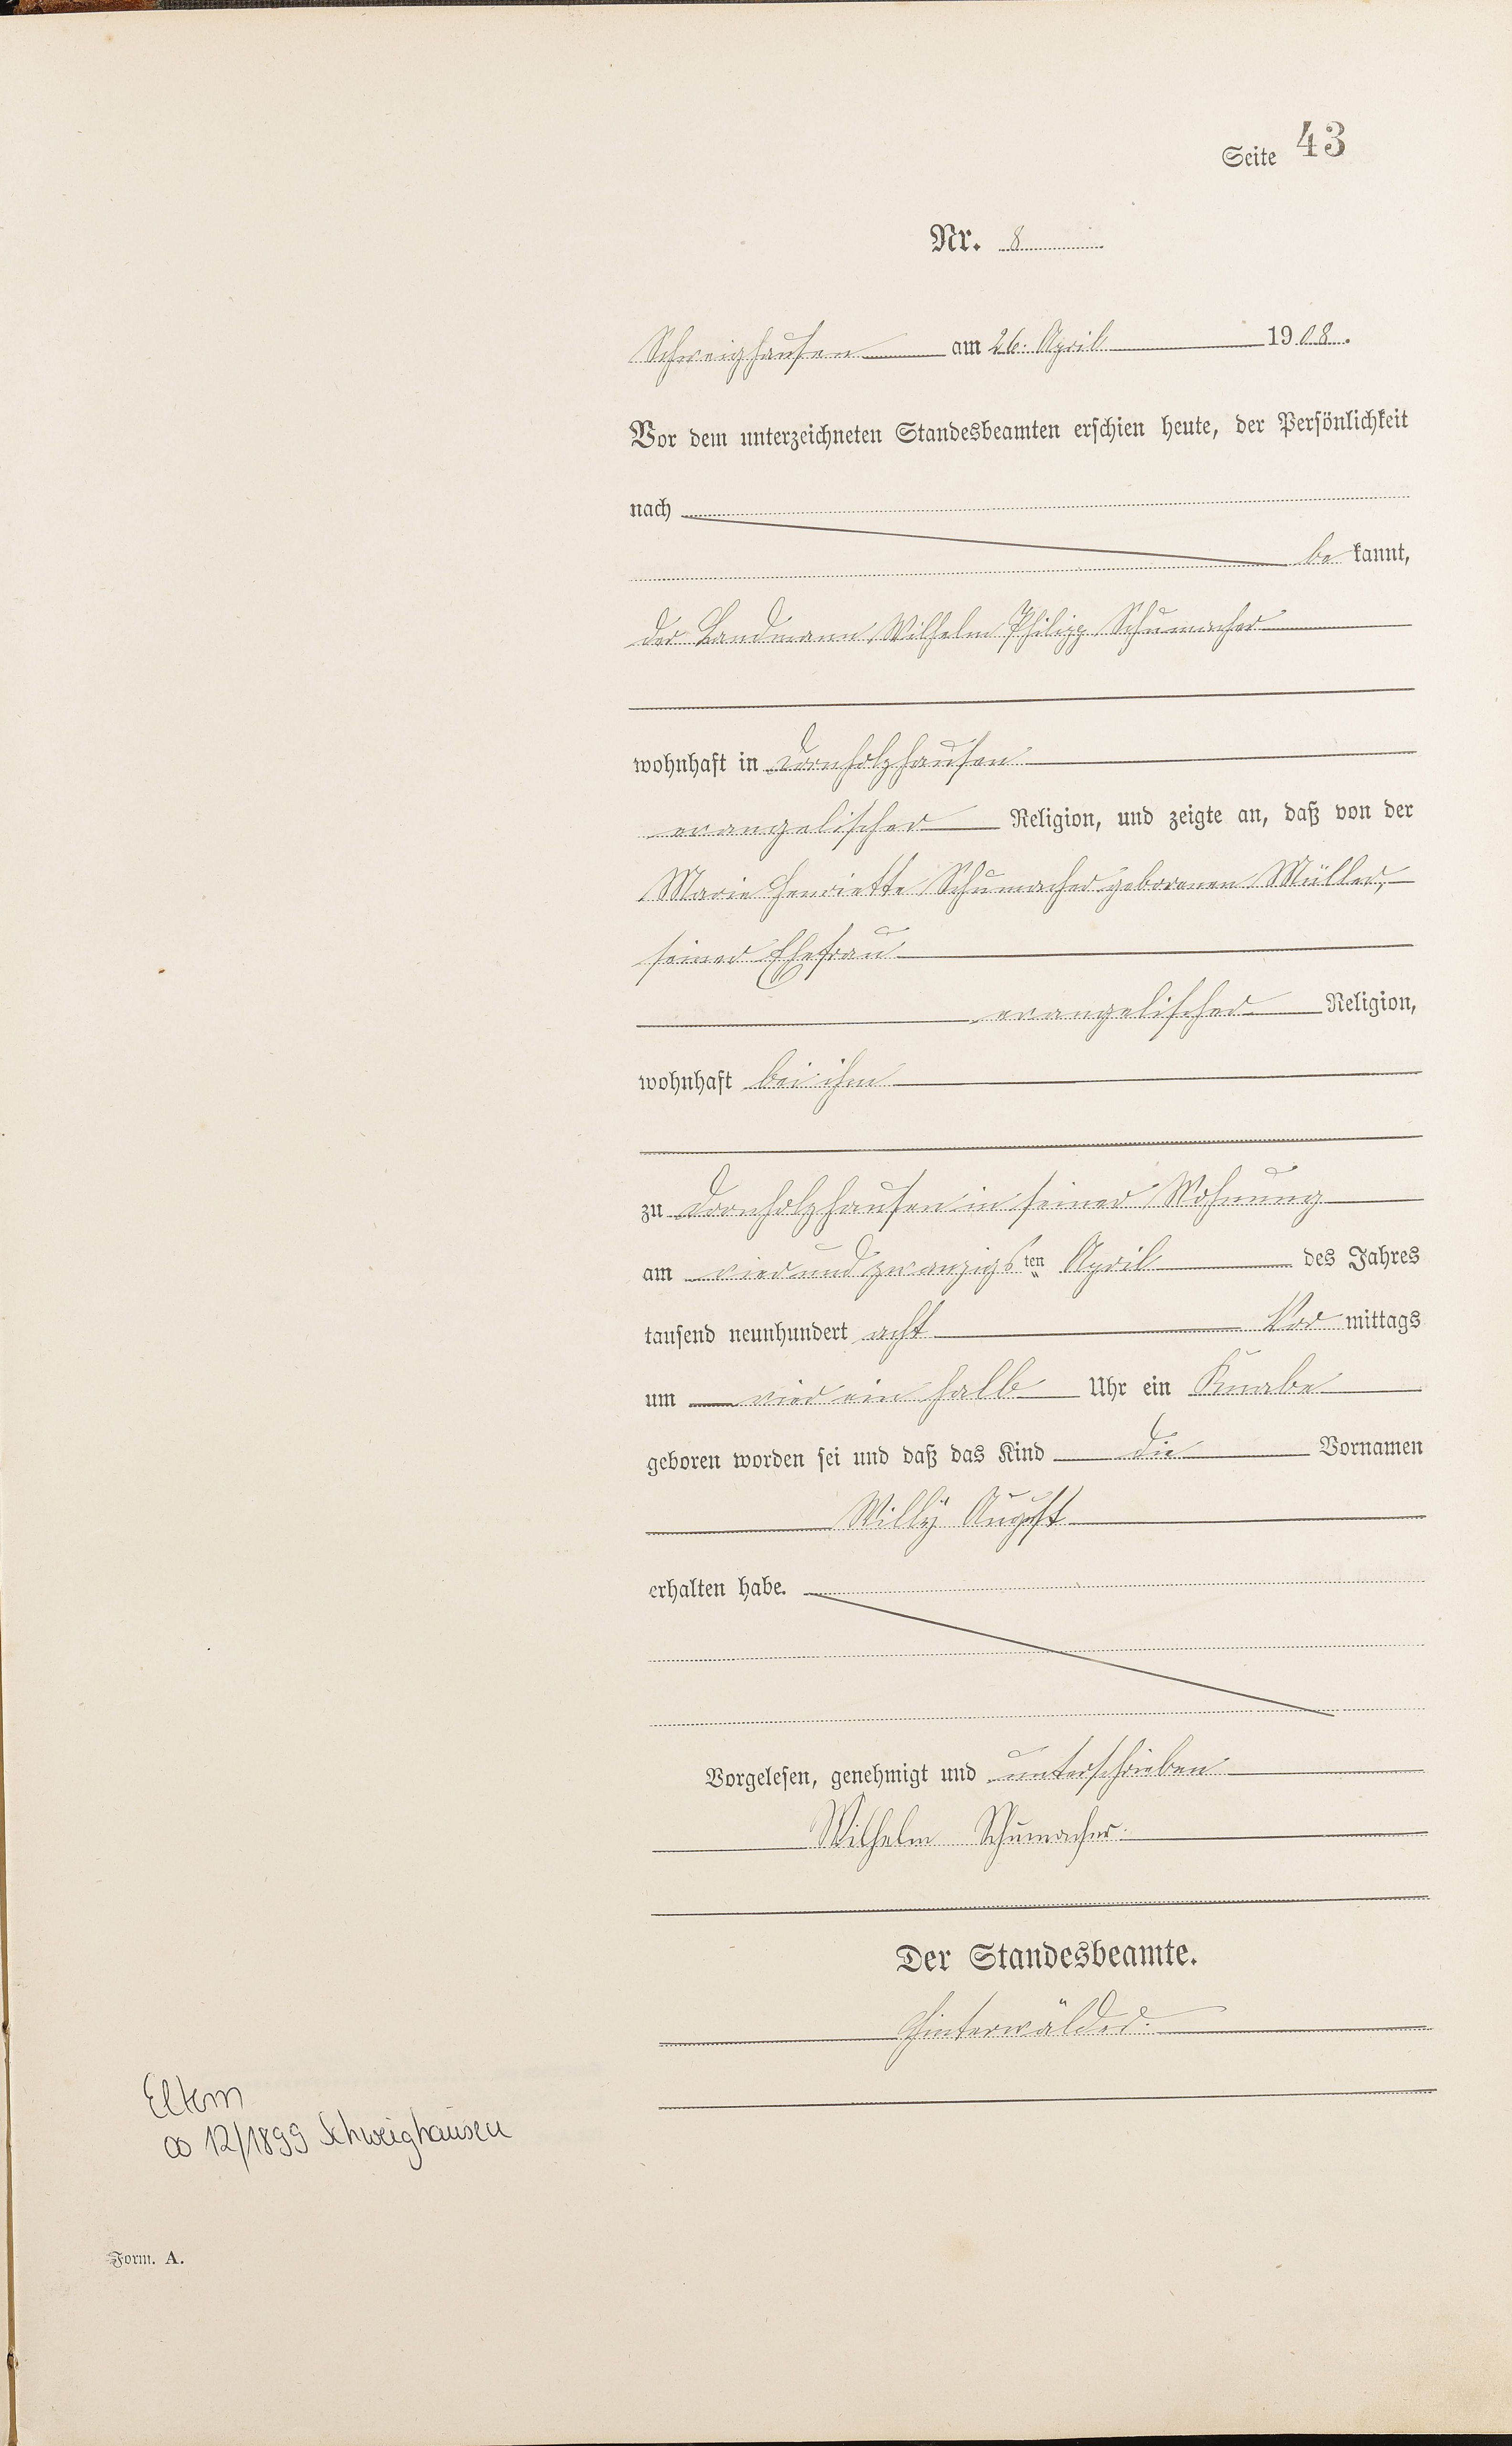 Seite 43
Nr. 8
Schweighausen am 26. April 1908.
Vor dem unterzeichneten Standesbeamten erschien heute, der Persönlichkeit
nach
be kannt,
der Landmann Wilhelm Philipp Schumacher
wohnhaft in Dornholzhausen
evangelischer Religion, und zeigte an, daß von der
Marie Henriette Schumacher geborenen Müller,
seiner Ehefrau
evangelischer Religion,
wohnhaft bei ihm
zu Dornholzhausen in seiner Wohnung
am vierundzwanzigsten April des Jahres
tausend neunhundert acht Vor mittags
um vier ein halb Uhr ein Knabe
geboren worden sei und daß das Kind die Vornamen
Willÿ August
erhalten habe.
Vorgelesen, genehmigt und unterschrieben
Wilhelm Schumacher.
Der Standesbeamte.
Hinterwälder.
Eltern
∞ 12/1899 Schweighausen
Form. A.